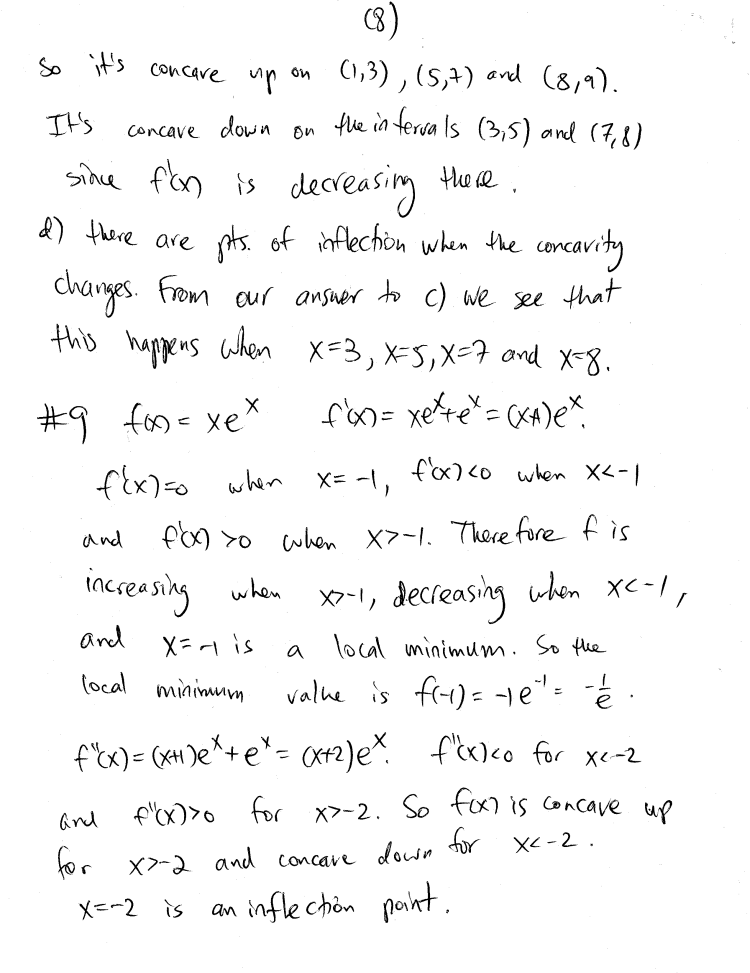 (8)
So it's concave up on (1,3), (5,7) and (8,9).
It's concave down on the intervals (3,5) and (7,8)
since f'(x) is decreasing there.
d) there are pts. of inflection when the concavity
changes. From our answer to c) we see that
this happens when x=3, x=5, x=7 and x=8.
#9 f(x) = xe^x f'(x) = xe^x+e^x = (x+1)e^x.
f'(x)=0 when x=-1, f'(x)<0 when x<-1
and f'(x)>0 when x>-1. Therefore f is
increasing when x>-1, decreasing when x<-1,
and x=-1 is a local minimum. So the
local minimum value is f(-1) = -1e^-1 = -1/e.
f"(x) = (x+1)e^x + e^x = (x+2)e^x. f"(x)<0 for x<-2
and f"(x)>0 for x>-2. So f(x) is concave up
for x>-2 and concave down for x<-2.
x=-2 is an inflection point.